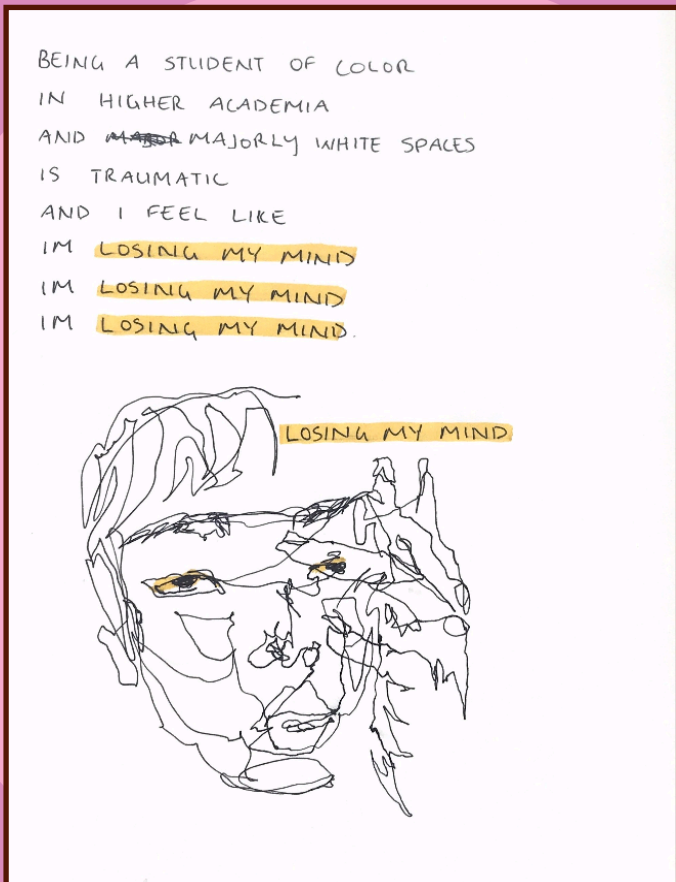 BEING A STUDENT OF COLOR
IN HIGHER ACADEMIA
AND MAJOR MAJORLY WHITE SPACES
IS TRAUMATIC
AND I FEEL LIKE
IM LOSING MY MIND
IM LOSING MY MIND
IM LOSING MY MIND.
LOSING MY MIND